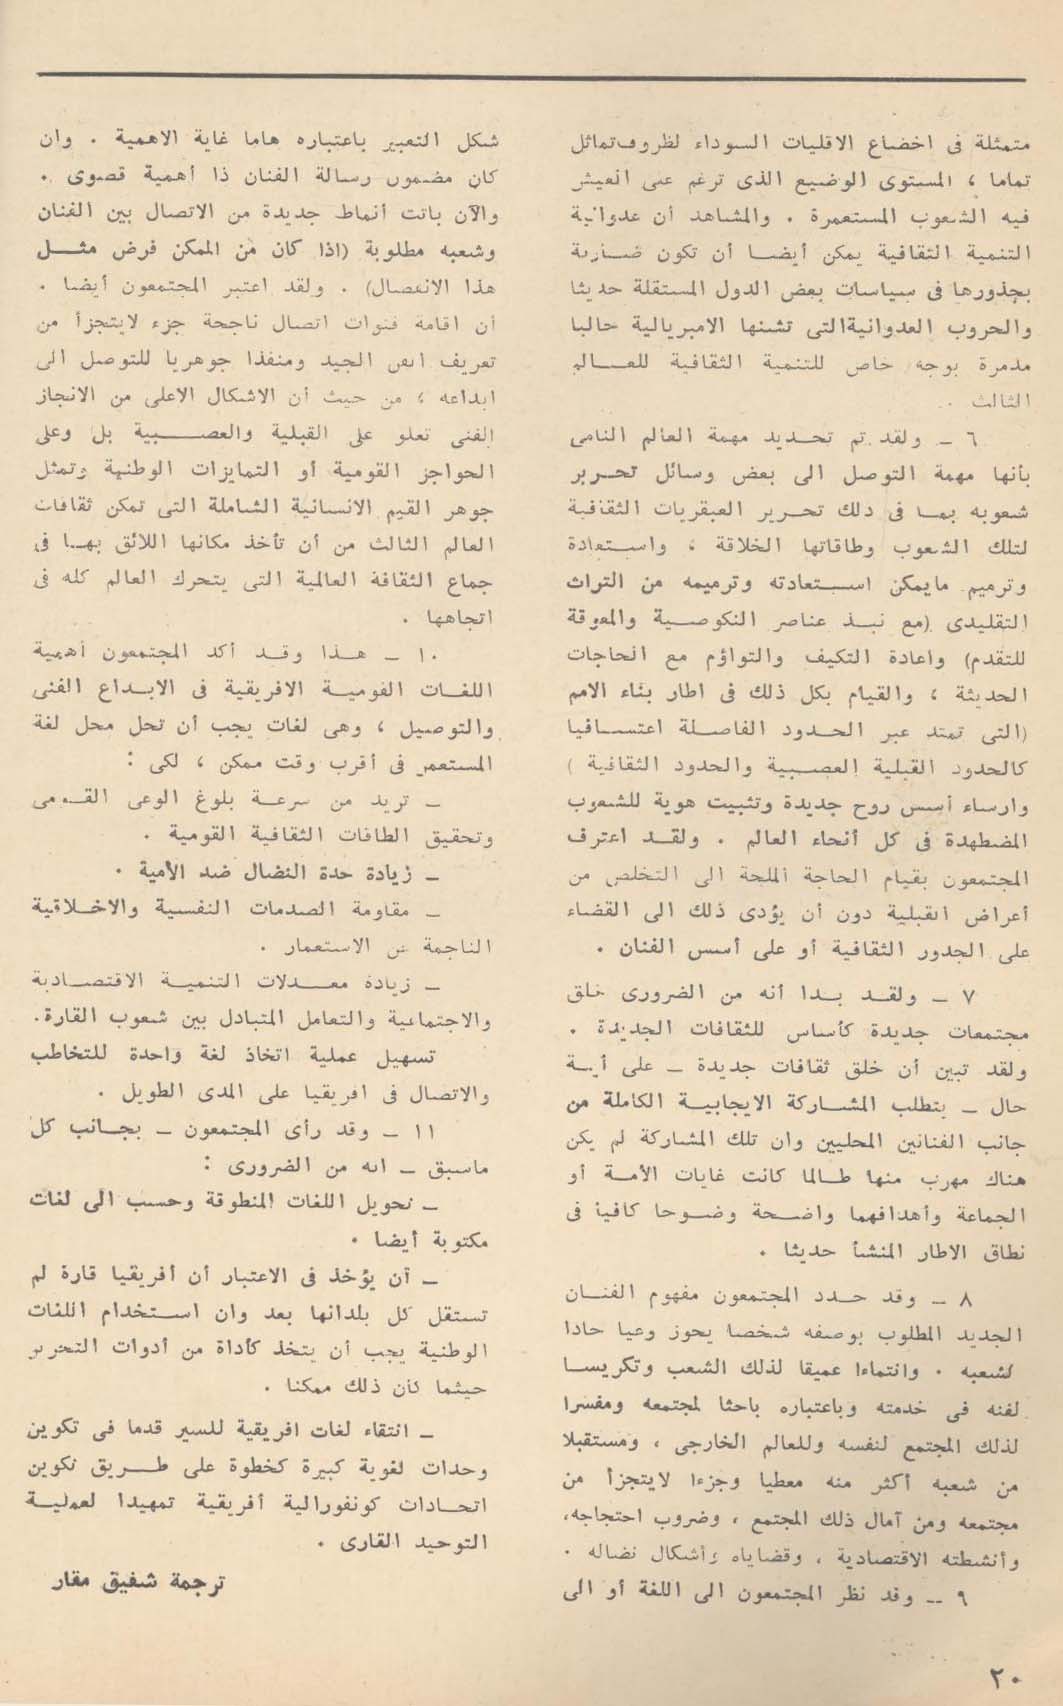 متمثلة فى اخضاع الاقليات السوداء لظروف تماثل
تماما ، المستوى الوضيع الذى ترغم على العيش
فيه الشعوب المستعمرة . والمشاهد أن عدوانية
التنمية الثقافية يمكن أيضا أن تكون ضاربة
بجذورها فى سياسات بعض الدول المستقلة حديثا
والحروب العدوانية التى تشنها الامبريالية حاليا
مدمرة بوجه خاص للتنمية الثقافية للعالم
الثالث .
٦ – ولقد تم تحديد مهمة العالم النامى
بأنها مهمة التوصل الى بعض وسائل تحرير
شعوبه بما فى ذلك تحرير العبقريات الثقافية
لتلك الشعوب وطاقاتها الخلاقة ، واستعادة
وترميم مايمكن استعادته وترميمه من التراث
التقليدى (مع نبذ عناصر النكوصية والمعوقة
للتقدم) واعادة التكيف والتواؤم مع الحاجات
الحديثة ، والقيام بكل ذلك فى اطار بناء الامم
(التى تمتد عبر الحدود الفاصلة اعتسافيا
كالحدود القبلية العصبية والحدود الثقافية )
وارساء أسس روح جديدة وتثبيت هوية للشعوب
المضطهدة فى كل أنحاء العالم . ولقد اعترف
المجتمعون بقيام الحاجة الملحة الى التخلص من
أعراض القبلية دون أن يؤدى ذلك الى القضاء
على الجدور الثقافية أو على أسس الفنان .
٧ – ولقد بدا أنه من الضرورى خلق
مجتمعات جديدة كأساس للثقافات الجديدة .
ولقد تبين أن خلق ثقافات جديدة – على أية
حال – يتطلب المشاركة الايجابية الكاملة من
جانب الفنانين المحليين وان تلك المشاركة لم يكن
هناك مهرب منها طالما كانت غايات الأمة أو
الجماعة وأهدافهما واضحة وضوحا كافيا فى
نطاق الاطار المنشأ حديثا .
٨ – وقد حدد المجتمعون مفهوم الفنان
الجديد المطلوب بوصفه شخصا يحوز وعيا حادا
لشعبه . وانتماءا عميقا لذلك الشعب وتكريسا
لفنه فى خدمته وباعتباره باحثا لمجتمعه ومفسرا
لذلك المجتمع لنفسه وللعالم الخارجى ، ومستقبلا
من شعبه أكثر منه معطيا وجزءا لايتجزأ من
مجتمعه ومن آمال ذلك المجتمع ، وضروب احتجاجه،
وأنشطته الاقتصادية ، وقضاياه وأشكال نضاله .
٩ – وقد نظر المجتمعون الى اللغة أو الى
شكل التعبير باعتباره هاما غاية الاهمية . وان
كان مضمون رسالة الفنان ذا أهمية قصوى .
والآن باتت أنماط جديدة من الاتصال بين الفنان
وشعبه مطلوبة (اذا كان من الممكن فرض مثل
هذا الانفصال) . ولقد اعتبر المجتمعون أيضا .
أن اقامة قنوات اتصال ناجحة جزء لايتجزأ من
تعريف الفن الجيد ومنفذا جوهريا للتوصل الى
ابداعه ، من حيث أن الاشكال الاعلى من الانجاز
الفنى تعلو على القبلية والعصبية بل وعلى
الحواجز القومية أو التمايزات الوطنية وتمثل
جوهر القيم الانسانية الشاملة التى تمكن ثقافات
العالم الثالث من أن تأخذ مكانها اللائق بها فى
جماع الثقافة العالمية التى يتحرك العالم كله فى
اتجاهها .
١٠ – هذا وقد أكد المجتمعون أهمية
اللغات القومية الافريقية فى الابداع الفنى
والتوصيل ، وهى لغات يجب أن تحل محل لغة
المستعمر فى أقرب وقت ممكن ، لكى :
– تزيد من سرعة بلوغ الوعى القومى
وتحقيق الطاقات الثقافية القومية .
– زيادة حدة النضال ضد الأمية .
– مقاومة الصدمات النفسية والاخلاقية
الناجمة عن الاستعمار .
– زيادة معدلات التنمية الاقتصادية
والاجتماعية والتعامل المتبادل بين شعوب القارة.
تسهيل عملية اتخاذ لغة واحدة للتخاطب
والاتصال فى افريقيا على المدى الطويل .
١١ – وقد رأى المجتمعون – بجانب كل
ماسبق – انه من الضرورى :
– تحويل اللغات المنطوقة وحسب الى لغات
مكتوبة أيضا .
– أن يؤخذ فى الاعتبار أن أفريقيا قارة لم
تستقل كل بلدانها بعد وان استخدام اللغات
الوطنية يجب أن يتخذ كأداة من أدوات التحرير
حيثما كان ذلك ممكنا .
– انتقاء لغات افريقية للسير قدما فى تكوين
وحدات لغوية كبيرة كخطوة على طريق تكوين
اتحادات كونفورالية أفريقية تمهيدا لعملية
التوحيد القارى .
ترجمة شفيق مقار
٢٠